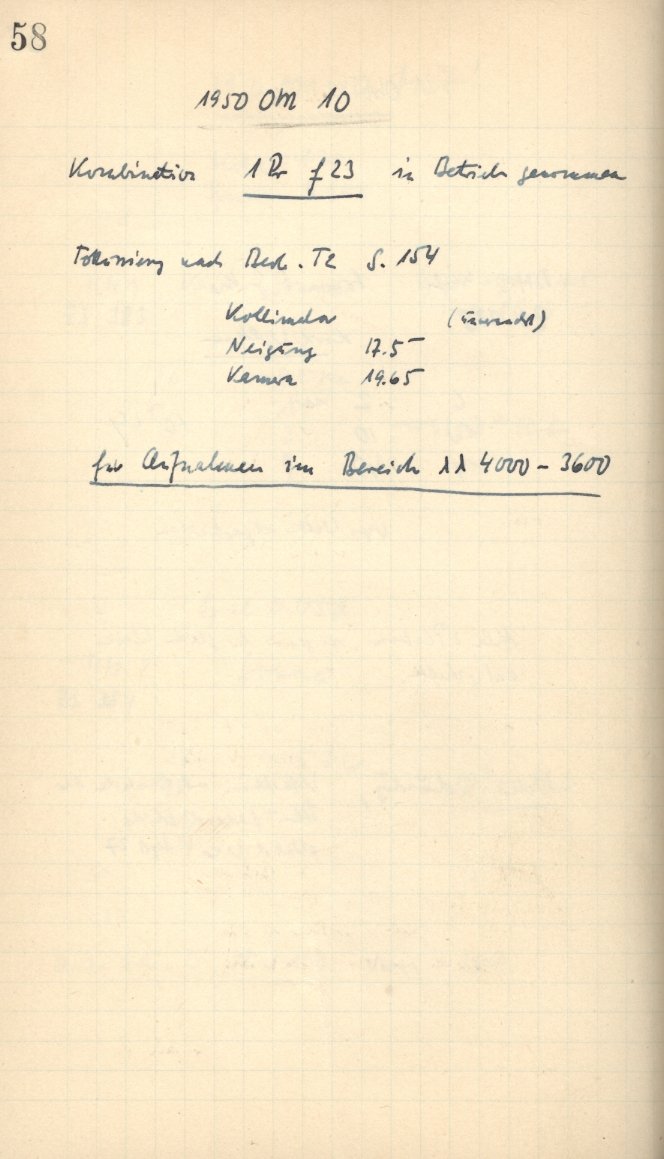 58
1950 Okt 10
Kombination 1 Pr f 23 in Betrieb genommen
Fokussierung nach Beob. T2 S. 154
Kollimator
Neigung 17.5
Kamera 19.65
für Aufnahmen im Bereich λλ 4000 - 3600